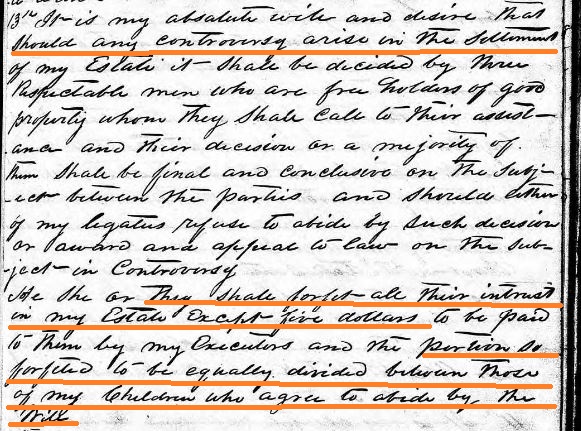 13th It is my absolute will and desire that
should any controversy arise in the Settlement
of my Estate it shall be decided by three
respectable men who are free holders of good
property whom they shall call to their assist-
ance and their decision or a majority of
them shall be final and conclusive on the Subj-
-ect between the parties and should either
of my legatus refuse to abide by such decision
or award and appeal to law on the sub-
-ject in Controversy
He She or they shall forfet all their intrust
in my Estate Except five dollars to be paid
to them by my Executors and the portion so
forfeted to be equally divided between those
of my Children who agree to abide by the
Will